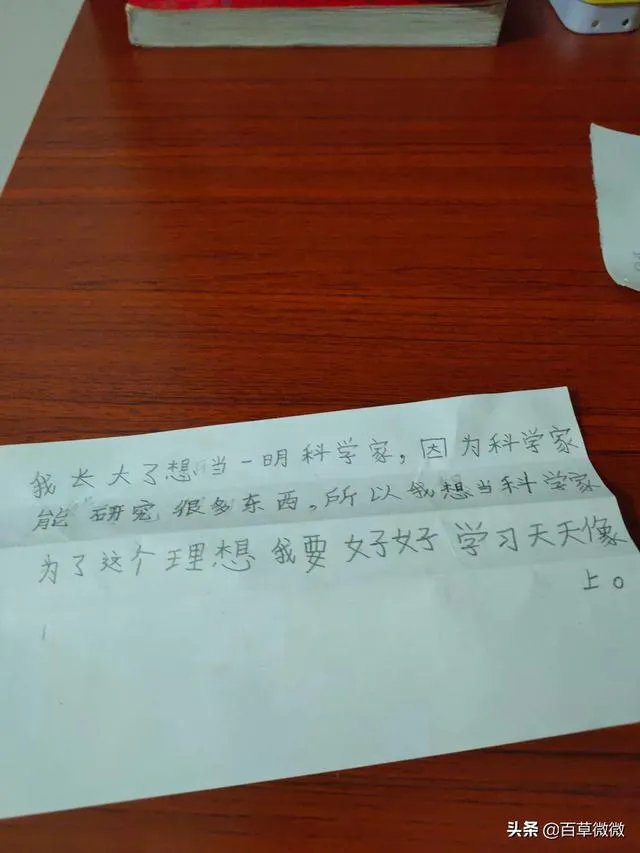 我长大了想当一明科学家，因为科学家
能研究很多东西，所以我想当科学家
为了这个理想我要好好学习天天像
上。
头条 @百草微微